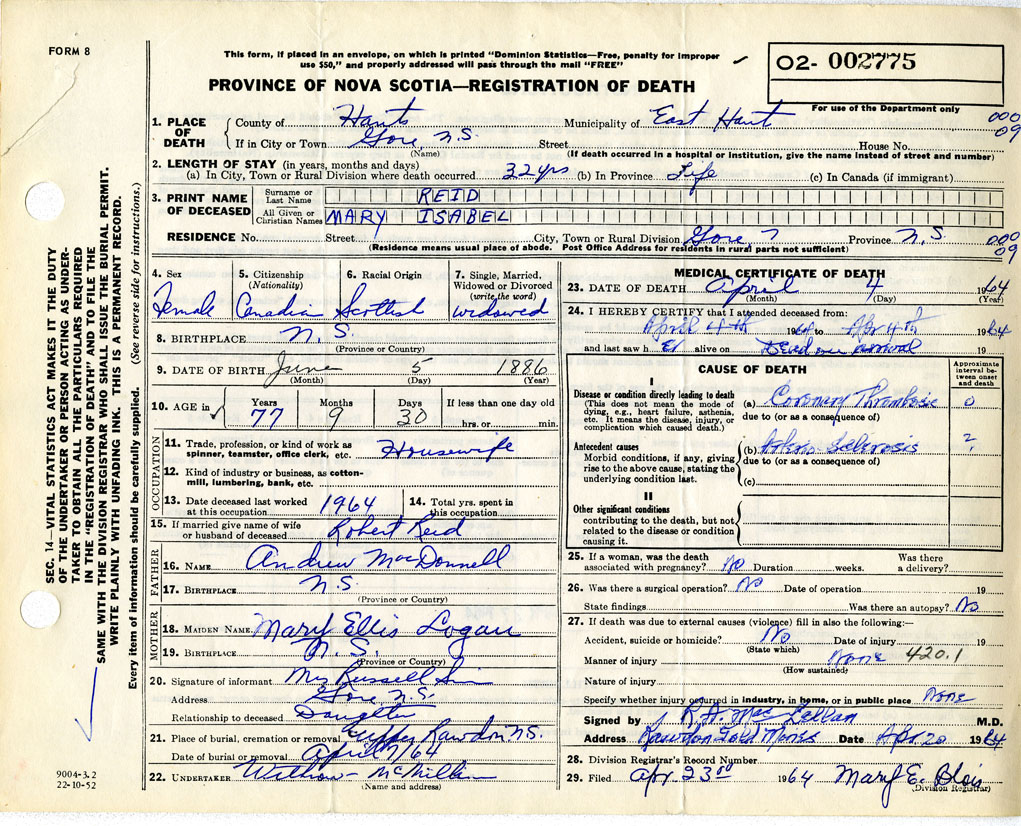 FORM 8
This form, if placed in an envelope, on which is printed "Dominion Statistics—Free, penalty for improper
use $50," and properly addressed will pass through the mail "FREE"
02- 002775
PROVINCE OF NOVA SCOTIA—REGISTRATION OF DEATH
For use of the Department only
1. PLACE OF DEATH
County of Hants Municipality of East Hant 000
If in City or Town Gore, N.S. Street House No. 09
(Name) (If death occurred in a hospital or institution, give the name instead of street and number)
2. LENGTH OF STAY (in years, months and days)
(a) In City, Town or Rural Division where death occurred 32 yrs (b) In Province Life (c) In Canada (if immigrant)
3. PRINT NAME OF DECEASED
Surname or Last Name REID
All Given or Christian Names MARY ISABEL
RESIDENCE No. Street City, Town or Rural Division Gore, Province N.S. 000
(Residence means usual place of abode. Post Office Address for residents in rural parts not sufficient) 09
4. Sex Female
5. Citizenship (Nationality) Canadian
6. Racial Origin Scottish
7. Single, Married, Widowed or Divorced (write the word) widowed
8. BIRTHPLACE N.S.
(Province or Country)
9. DATE OF BIRTH June 5 1886
(Month) (Day) (Year)
10. AGE in Years 77 Months 9 Days 30 If less than one day old hrs. or min.
OCCUPATION
11. Trade, profession, or kind of work as spinner, teamster, office clerk, etc. Housewife
12. Kind of industry or business, as cotton-mill, lumbering, bank, etc.
13. Date deceased last worked at this occupation 1964
14. Total yrs. spent in this occupation
15. If married give name of wife or husband of deceased Robert Reid
FATHER
16. NAME Andrew MacDonnell
17. BIRTHPLACE N.S.
(Province or Country)
MOTHER
18. MAIDEN NAME Mary Ellis Logan
19. BIRTHPLACE N.S.
(Province or Country)
20. Signature of informant Mrs Russell
Address Gore N.S.
Relationship to deceased Daughter
21. Place of burial, cremation or removal Upper Rawdon N.S.
Date of burial or removal April 7/64
22. UNDERTAKER
(Name and address)
MEDICAL CERTIFICATE OF DEATH
23. DATE OF DEATH April 4 1964
(Month) (Day) (Year)
24. I HEREBY CERTIFY that I attended deceased from
April 4th 1964 to Apr 4th 1964
and last saw h er alive on Dead on arrival 19
CAUSE OF DEATH
Approximate interval between onset and death
I
Disease or condition directly leading to death
(This does not mean the mode of dying, e.g., heart failure, asthenia, etc. It means the disease, injury, or complication which caused death.)
(a) Coronary Thrombosis 0
due to (or as a consequence of)
Antecedent causes
Morbid conditions, if any, giving rise to the above cause, stating the underlying condition last.
(b) Sclerosis ?
due to (or as a consequence of)
(c)
II
Other significant conditions
contributing to the death, but not related to the disease or condition causing it.
25. If a woman, was the death associated with pregnancy? No Duration weeks. Was there a delivery?
26. Was there a surgical operation? No Date of operation 19
State findings Was there an autopsy? No
27. If death was due to external causes (violence) fill in also the following:—
Accident, suicide or homicide? No Date of injury 19
(State which)
Manner of injury None 420.1
(How sustained)
Nature of injury
Specify whether injury occurred in industry, in home, or in public place None
Signed by R.A. MacLellan M.D.
Address Rawdon Gold Mines Date Apr 20 1964
28. Division Registrar's Record Number
29. Filed Apr. 23rd 1964 Mary E. Blois
(Division Registrar)
SEC. 14—VITAL STATISTICS ACT MAKES IT THE DUTY
OF THE UNDERTAKER OR PERSON ACTING AS UNDER-
TAKER TO OBTAIN ALL THE PARTICULARS REQUIRED
IN THE "REGISTRATION OF DEATH" AND TO FILE THE
SAME WITH THE DIVISION REGISTRAR WHO SHALL ISSUE THE BURIAL PERMIT.
WRITE PLAINLY WITH UNFADING INK. THIS IS A PERMANENT RECORD.
Every item of information should be carefully supplied. (See reverse side for instructions.)
9004-3.2
22-10-52